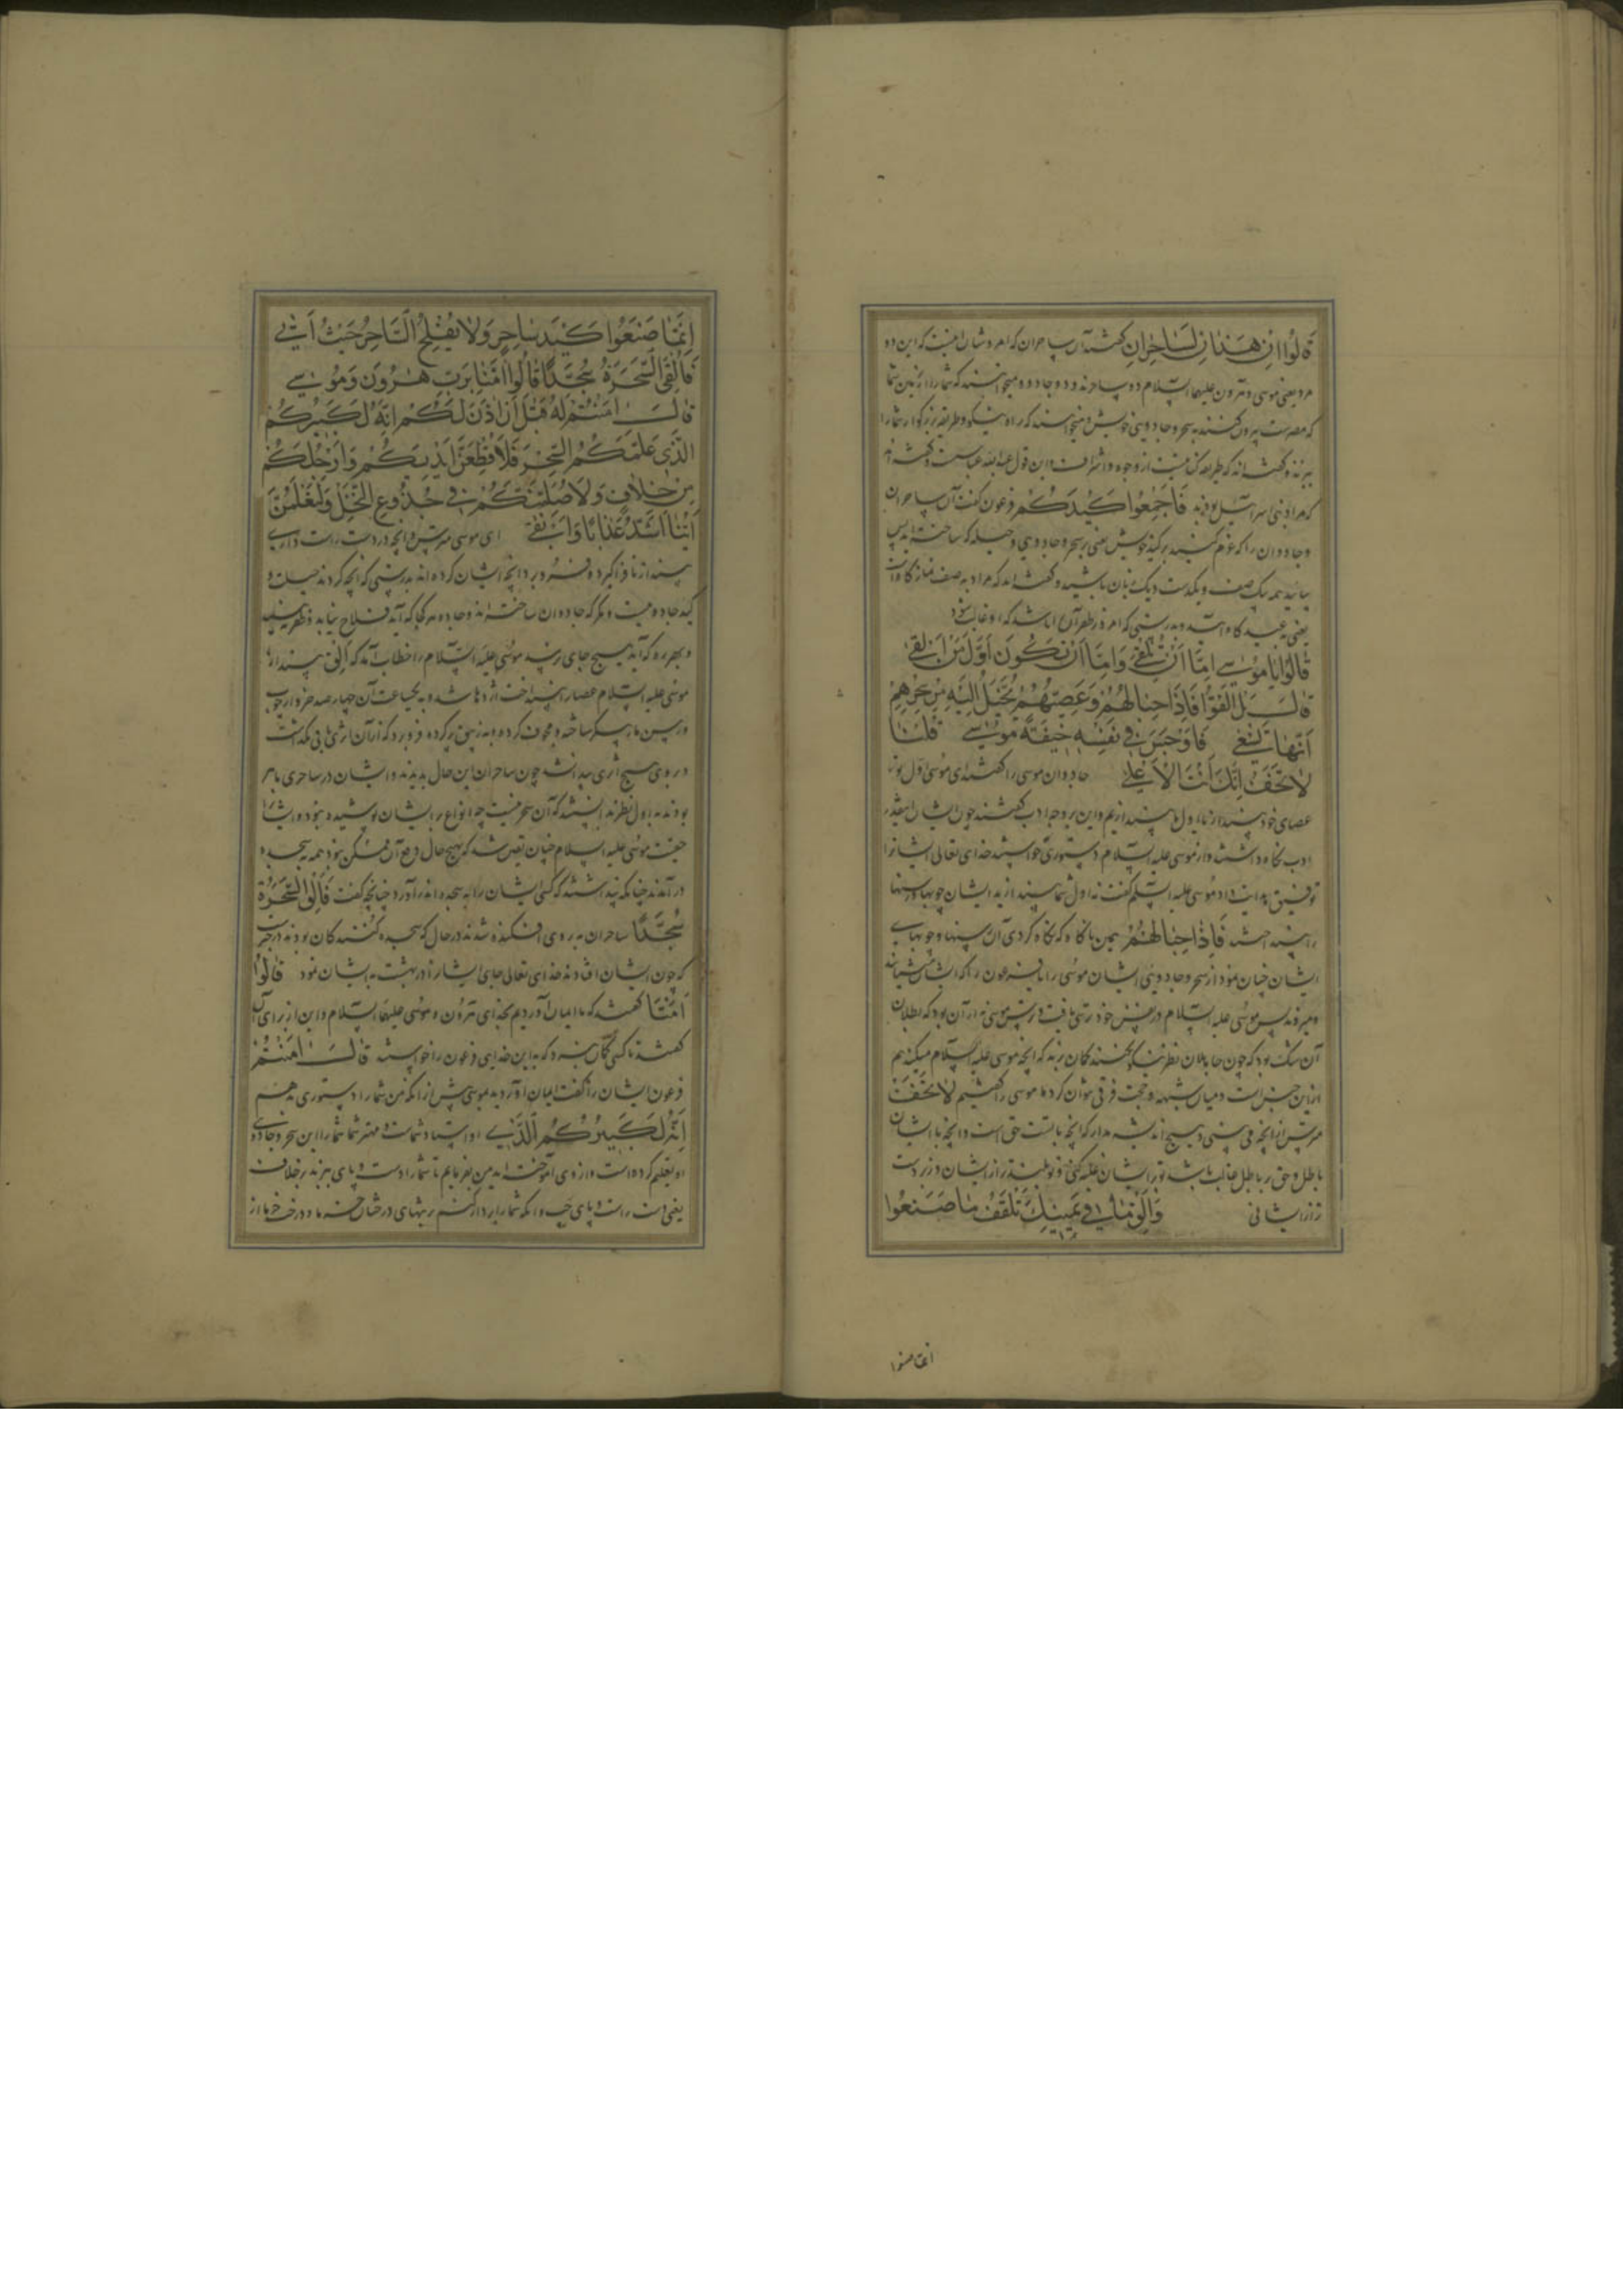 قَالُوا اِنْ هَذَانِ لَسَاحِرَانِ گفتند آن ساحران که امر و شان اینست که این دو
مرد یعنی موسی و هرون علیهما السلام دو ساحرند و دو جادو و میخواهند که شما را از زمین شما
که مصرست بیرون کنند به سحر و جادویی خویش و میخواهند که راه نیکو و طریقه بزرگوار شما را
ببرند و گفته‌اند که طریقه کنایتست از وجوه و اشراف و این قول عبدالله عباسست و گفته‌اند
که مراد بنی اسرائیل بودند فَاَجْمِعُوا كَيْدَكُمْ فرعون گفت آن ساحران
و جادوان را که عزم کنید بر کید خویش یعنی بر سحر و جادویی و حیله که ساخته‌اید پس
بیایید همه یک صف و یکدست و یک زبان باشید و گفته‌اند که مراد به صف نماز گاه است
یعنی به عید گاه آیید و بدرستی که امروز ظفر آن را باشد که او غالب شود
قَالُوا يَا مُوسٰى اِمَّا اَنْ تُلْقِىَ وَاِمَّا اَنْ نَكُونَ اَوَّلَ مَنْ اَلْقٰى
قَالَ بَلْ اَلْقُوا فَاِذَا حِبَالُهُمْ وَعِصِيُّهُمْ يُخَيَّلُ اِلَيْهِ مِنْ سِحْرِهِمْ
اَنَّهَا تَسْعٰى فَاَوْجَسَ فِى نَفْسِهِ خِيفَةً مُوسٰى قُلْنَا
لَا تَخَفْ اِنَّكَ اَنْتَ الْاَعْلٰى جادوان موسی را گفتند ای موسی اول تو
عصای خود بیندازی یا اول ما بیندازیم و این بر وجه ادب گفتند چون ایشان اینقدر
ادب نگاه داشتند و از موسی علیه السلام دستوری خواستند خدای تعالی ایشانرا
توفیق هدایت داد موسی علیه السلم گفت نه اول شما بیندازید ایشان چوبها و رسنها
را بینداختند فَاِذَا حِبَالُهُمْ همین ناگاه که نگاه کردی آن رسنها و چوبهای
ایشان چنان نمود از سحر و جادویی ایشان موسی را یا فرعون را که ایشان میشتابند
و میروند پس موسی علیه السلام در نفس خود ترسی یافت و ترس موسی نه از آن بود که بطلان
آن شک بود که چون جاهلان نظر نیکو نکنند گمان برند که آنچه موسی علیه السلام میکند هم
از این جنس است و میان شبهه و حجت فرقی نتوان کرد ما موسی را گفتیم لَا تَخَفْ
مترس از آنچه می‌بینی و هیچ اندیشه مدار که آنچه با تست حق است و آنچه با ایشان
باطل و حق بر باطل غالب باشد تو بر ایشان غلبه کنی و تو بلندتر از ایشان و زبردست
تر از ایشانی وَاَلْقِ مَا فِى يَمِينِكَ تَلْقَفْ مَا صَنَعُوا
انما صنعوا
اِنَّمَا صَنَعُوا كَيْدُ سَاحِرٍ وَلَا يُفْلِحُ السَّاحِرُ حَيْثُ اَتٰى
فَاُلْقِىَ السَّحَرَةُ سُجَّدًا قَالُوا اٰمَنَّا بِرَبِّ هٰرُونَ وَمُوسٰى
قَالَ اٰمَنْتُمْ لَهُ قَبْلَ اَنْ اٰذَنَ لَكُمْ اِنَّهُ لَكَبِيرُكُمُ
الَّذِى عَلَّمَكُمُ السِّحْرَ فَلَاُقَطِّعَنَّ اَيْدِيَكُمْ وَاَرْجُلَكُمْ
مِنْ خِلَافٍ وَلَاُصَلِّبَنَّكُمْ فِى جُذُوعِ النَّخْلِ وَلَتَعْلَمُنَّ
اَيُّنَا اَشَدُّ عَذَابًا وَاَبْقٰى ای موسی مترس و آنچه در دست راست داری
بینداز تا فراگیرد و فرو برد آنچه ایشان کرده‌اند بدرستی که آنچه کردند حیلت و
کید جادوست و مکر که جادوان ساخته‌اند و جادو هر کجا که آید فلاح نیابد و ظفر نبیند
و بهر ره که آید بهیچ جای نرسد موسی علیه السلام را خطاب آمد که اَلْقِ بینداز
موسی علیه السلام عصا را بینداخت اژدها شد و به یکساعت آن چهار صد خروار چوب
و رسن مار پیکر ساخته و مجوف کرده و به زیبق پر کرده فرو برد که از آن اثری باقی نگذاشت
و بر وی هیچ اثری پیدا نشد چون ساحران این حال بدیدند و ایشان در ساحری ماهر
بودند به اول نظر بدانستند که آن سحر نیست چو انواع بر ایشان پوشیده نبود و ایشانرا
حقیقت موسی علیه السلام چنان مقرر شد که بهیچ حال دفع آن ممکن نبود همه به سجده
در آمدند چنانکه پنداشتند که کسی ایشان را به سجده اندر آورد چنانچه گفت فَاُلْقِىَ السَّحَرَةُ
سُجَّدًا ساحران بر روی افکنده شدند در حال که سجده کنندگان بودند در خبر
که چون ایشان افتادند خدای تعالی جای ایشانرا در بهشت به ایشان نمود قَالُوا
اٰمَنَّا گفتند که ما ایمان آوردیم بخدای هرون و موسی علیهما السلام و این از برای آن
گفتند تا کسی گمان نبرد که به این خدای فرعون را خواستند قَالَ اٰمَنْتُمْ
فرعون ایشان را گفت ایمان آوردید به موسی پیش از آنکه من شما را دستوری بدهم
اِنَّهُ لَكَبِيرُكُمُ الَّذِى او استاد شماست و مهتر شما شما را این سحر و جادوی
او تعلیم کرده است و از وی آموخته‌اید من بفرمایم تا شما را دست و پای ببرند بر خلاف
یعنی دست راست و پای چپ و آنکه شما را بر دار کنم بر تنهای درختان خرما و درخت خرما از